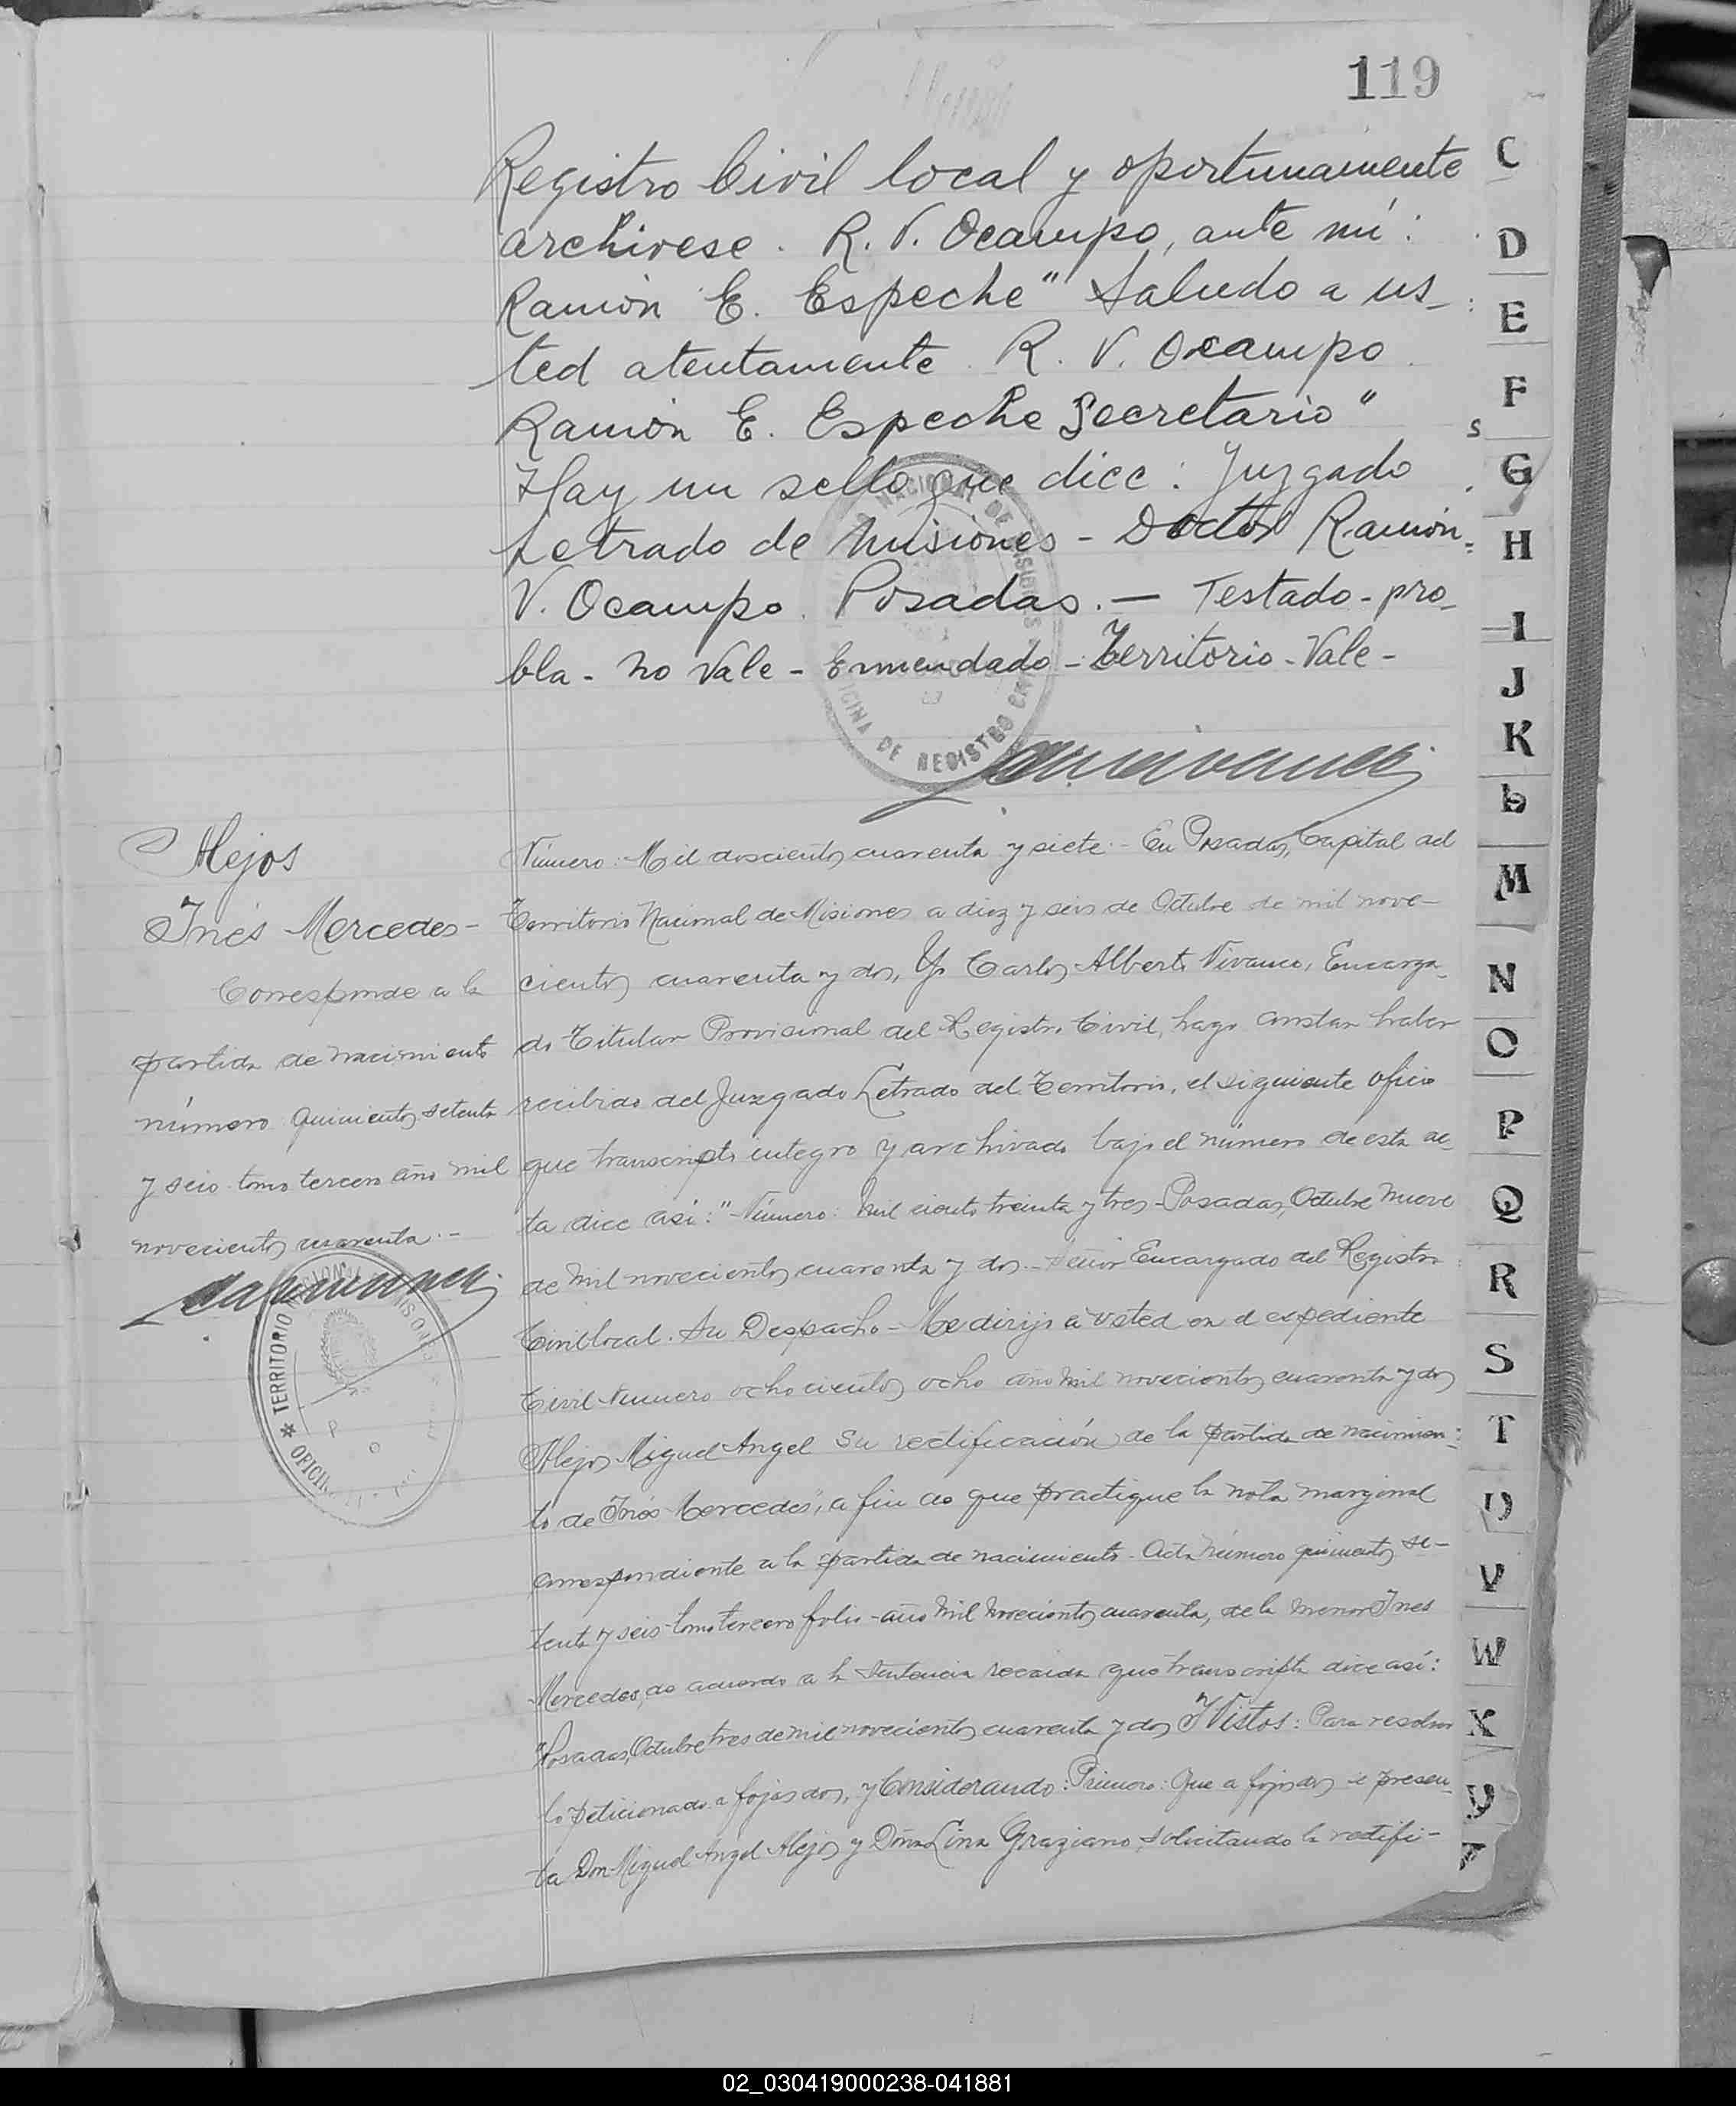 119
Registro Civil local y oportunamente
archivese. R. V. Ocampo, ante mí:
Ramón E. Espeche" Saludo a us-
ted atentamente. R. V. Ocampo.
Ramón E. Espeche Secretario"
Hay un sello que dice: Juzgado
Letrado de Misiones - Doctor Ramón
V. Ocampo. Posadas. — Testado - pro-
bla - no vale - Enmendado - Territorio - Vale -
Alejos
Inés Mercedes -
Corresponde a la
partida de nacimiento
número quinientos setenta
y seis tomo tercero año mil
novecientos cuarenta. -
TERRITORIO NACIONAL MISIONES
Número: Mil doscientos cuarenta y siete. - En Posadas, Capital del
Territorio Nacional de Misiones a diez y seis de Octubre de mil nove-
cientos cuarenta y dos, Yo Carlos Alberto Vivanco, Encarga-
do Titular Provisional del Registro Civil, hago constar haber
recibido del Juzgado Letrado del Territorio, el siguiente oficio
que transcripto integro y archivado bajo el número de esta ac-
ta dice así: "Número: Mil ciento treinta y tres - Posadas, Octubre nueve
de mil novecientos cuarenta y dos. - Señor Encargado del Registro
Civil local. Su Despacho - Me dirijo a usted en el expediente
Civil Numero ochocientos ocho año mil novecientos cuarenta y dos
Alejos Miguel Angel su rectificación de la partida de nacimien-
to de Inés Mercedes", a fin de que practique la nota marginal
correspondiente a la partida de nacimiento - Acta número quinientos se-
tenta y seis tomo tercero folio - año mil novecientos cuarenta, de la menor Ines
Mercedes, de acuerdo a la sentencia recaida que transcripta dice así:
"Posadas, Octubre tres de mil novecientos cuarenta y dos Y Vistos: Para resolver
lo peticionado a fojas dos, y Considerando: Primero: Que a fojas dos se presen-
ta Don Miguel Angel Alejos y Doña Lina Graziano, solicitando la rectifi-
C
D
E
F
G
H
I
J
K
L
M
N
O
P
Q
R
S
T
U
V
W
X
Y
Z
02_030419000238-041881